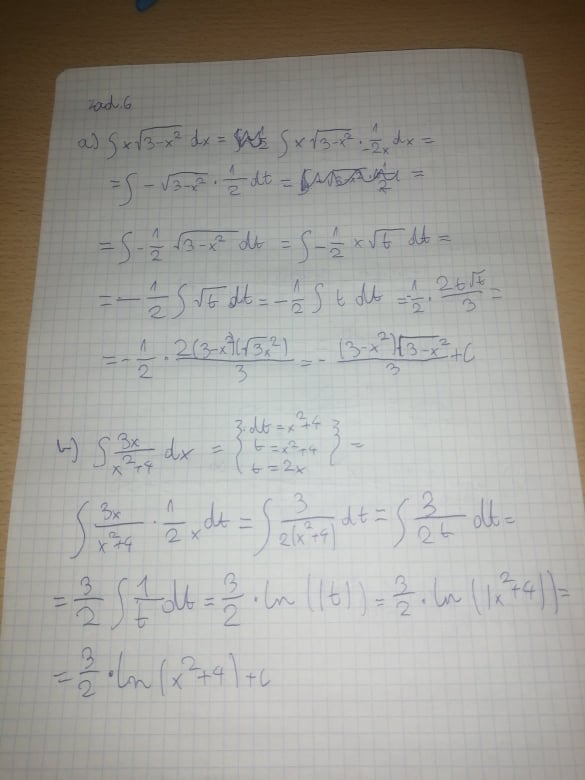 zad.6
a) ∫ x√(3-x²) dx = ∫ x√(3-x²) · 1/(-2x) dx =
= ∫ - √(3-x²) · 1/2 dt = =
= ∫ - 1/2 √(3-x²) dt = ∫ - 1/2 x √t dt =
= - 1/2 ∫ √t dt = - 1/2 ∫ t dt = - 1/2 · 2t√t/3 =
= - 1/2 · 2(3-x²)(√3x²)/3 = - (3-x²)√(3-x²)/3 + C
b) ∫ 3x/(x²+4) dx = { dt = x²+4
t = x²+4
t = 2x } =
∫ 3x/(x²+4) · 1/(2x) dt = ∫ 3/(2(x²+4)) dt = ∫ 3/(2t) dt =
= 3/2 ∫ 1/t dt = 3/2 · ln(|t|) = 3/2 · ln(|x²+4|) =
= 3/2 · ln(x²+4) + C